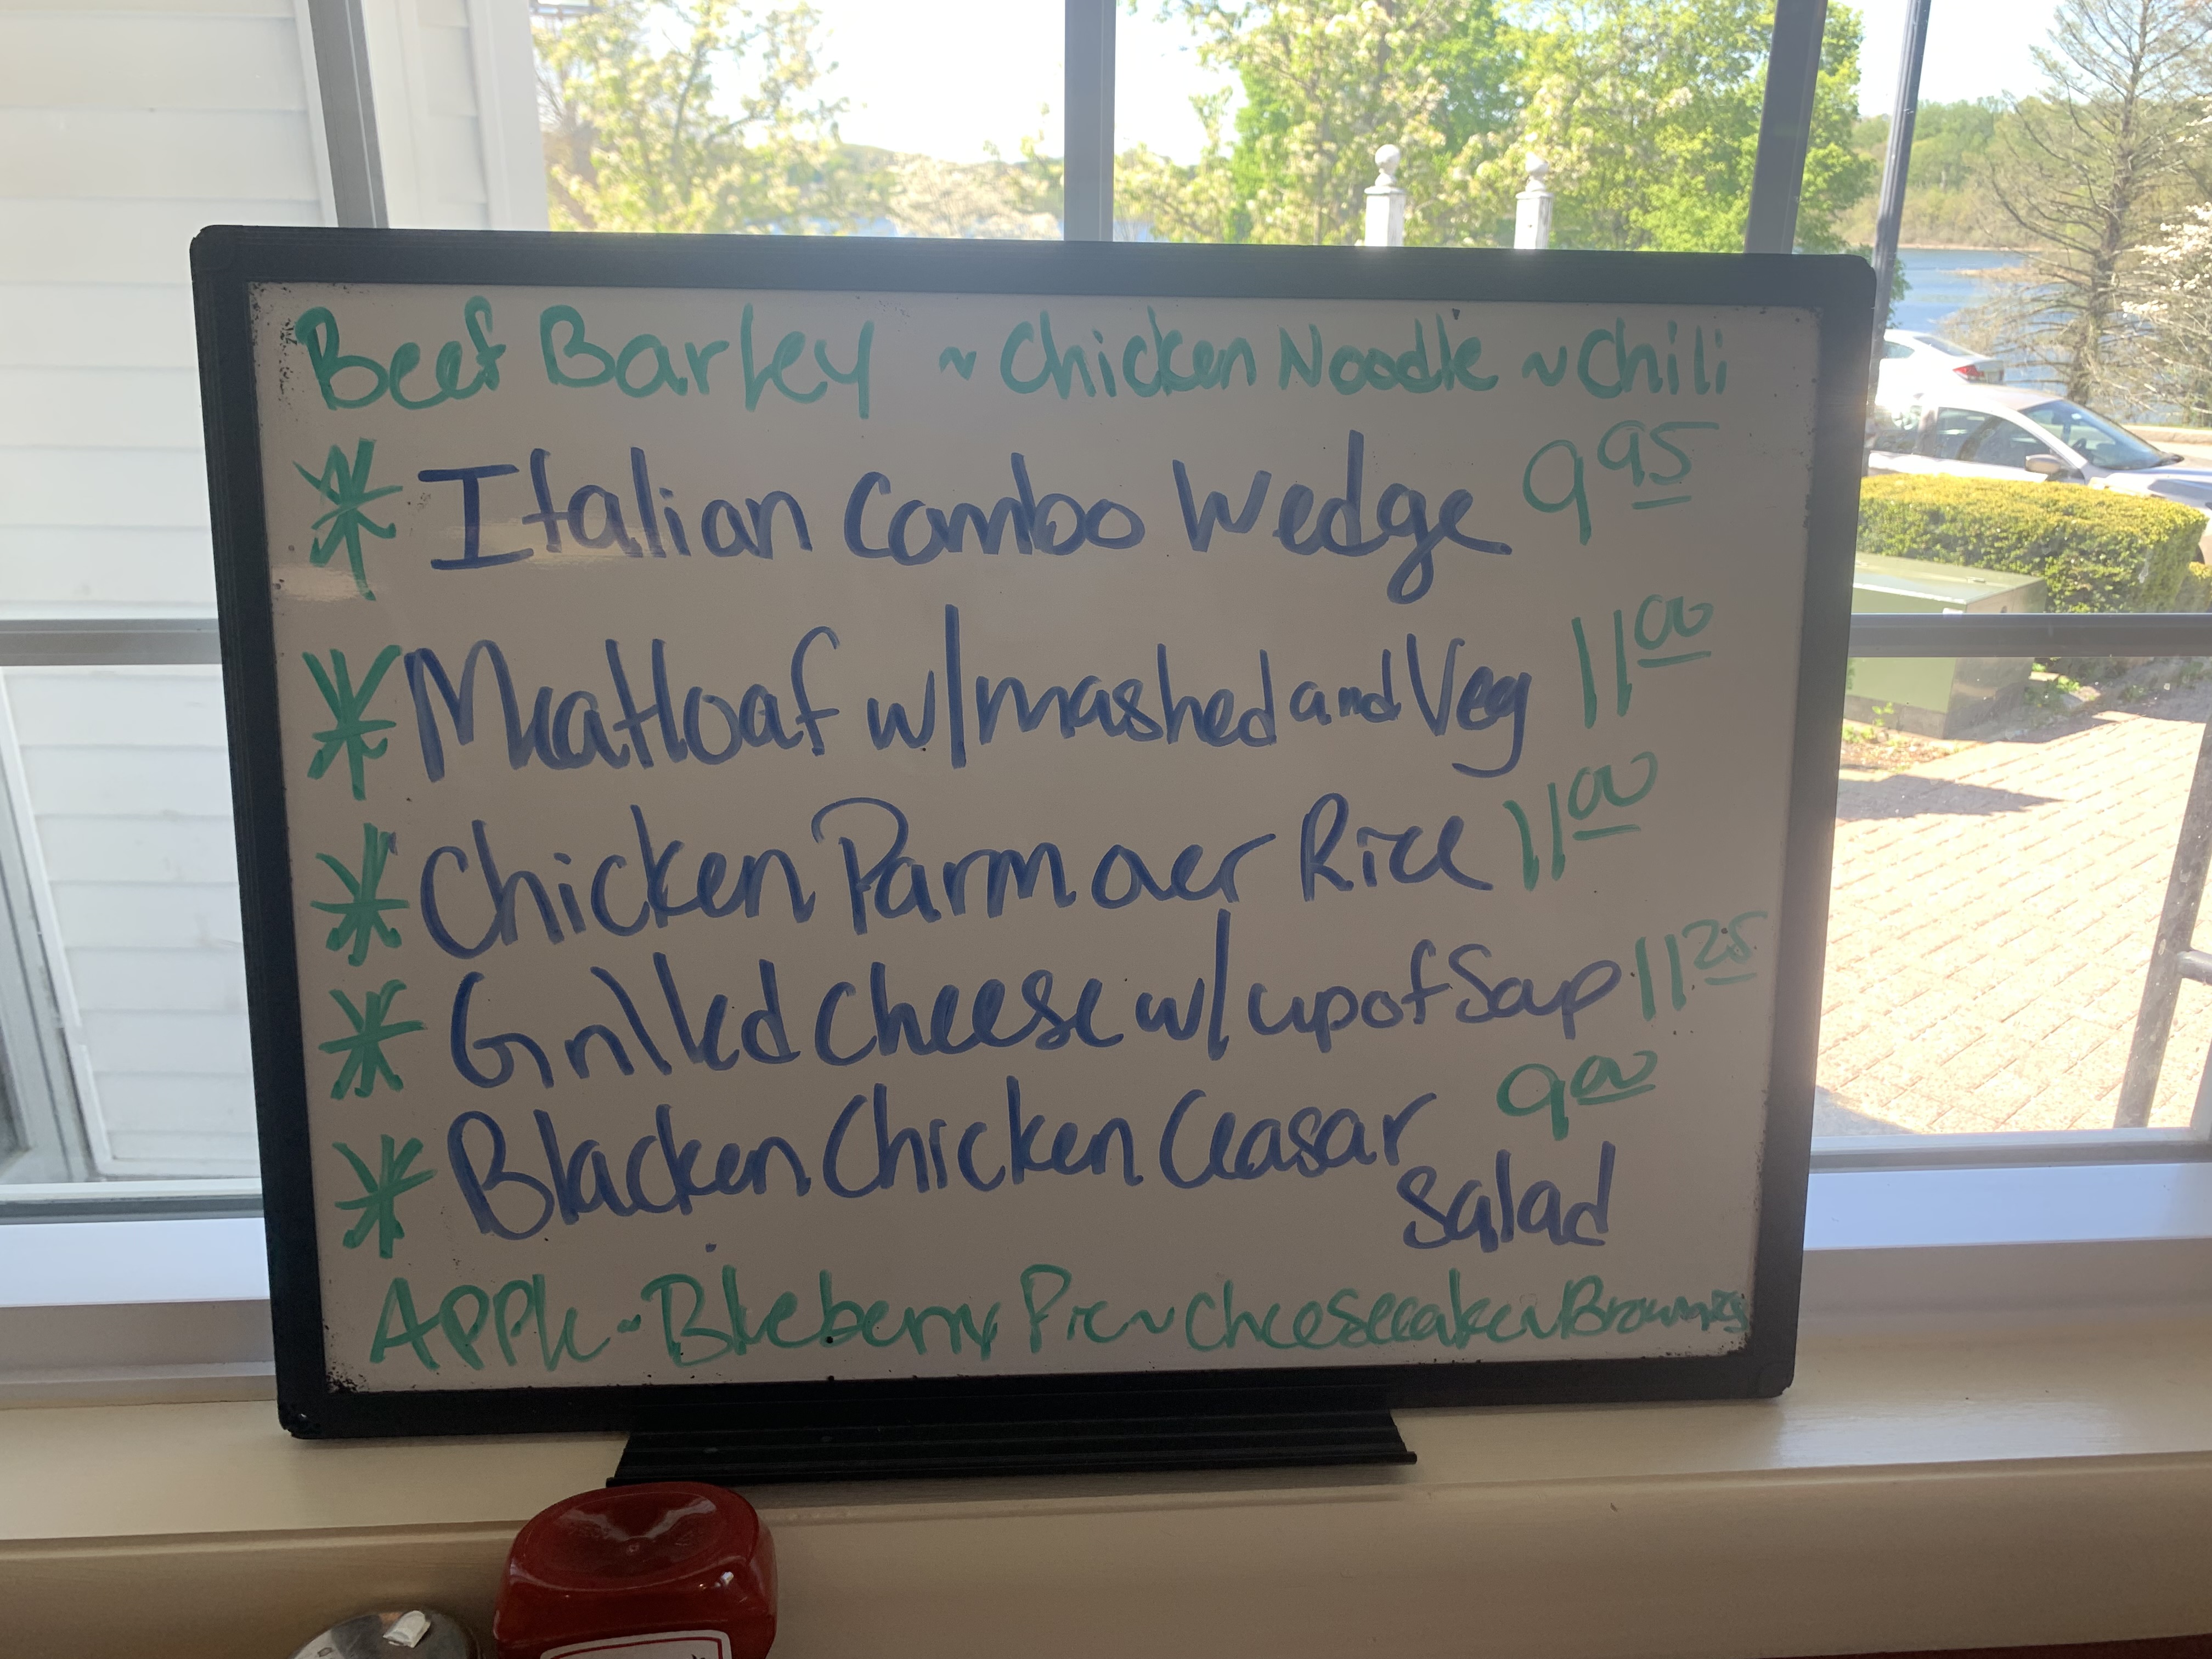 Beef Barley ~ Chicken Noodle ~ Chili
* Italian Combo Wedge 9 95
* Meatloaf w/ mashed and Veg 11 00
* Chicken Parm over Rice 11 00
* Grilled Cheese w/ cup of Soup 11 25
* Blacken Chicken Ceasar 9 00
Salad
Apple ~ Blueberry Pie ~ Cheesecake ~ Brownies